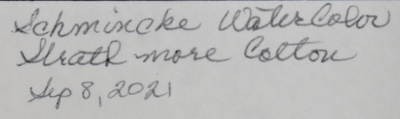 Schmincke WaterColor
Strathmore Cotton
Sep 8, 2021